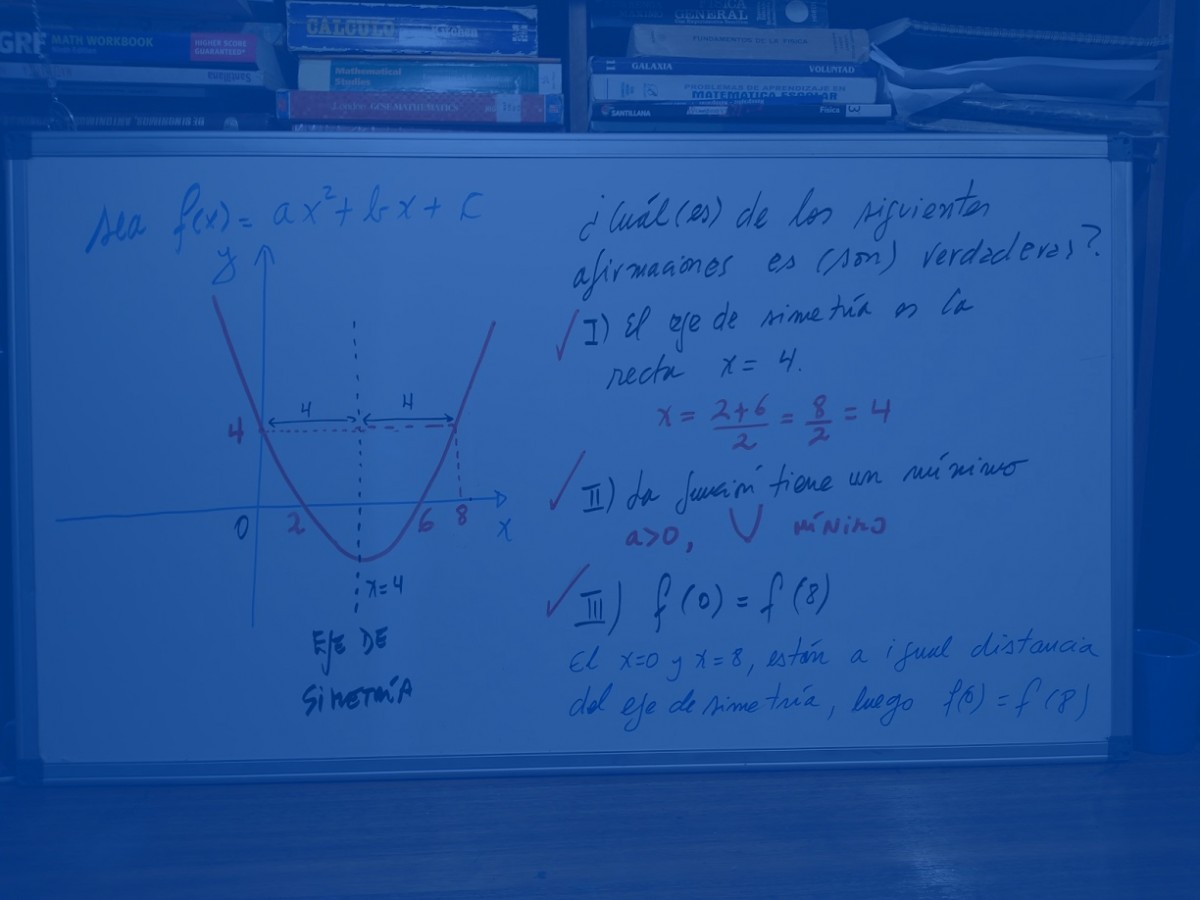 GRE MATH WORKBOOK
HIGHER SCORE
GUARANTEED*
Santillana
CALCULO
Kitchen
Mathematical
Studies
London GCSE MATHEMATICS
GENERAL
FUNDAMENTOS DE LA FISICA
GALAXIA VOLUNTAD
PROBLEMAS DE APRENDIZAJE EN
MATEMATICA ESCOLAR
SANTILLANA Física 3
sea f(x) = ax² + bx + c
y
4 4
4
0 2 6 8 x
x=4
EJE DE
SIMETRÍA
¿Cuál(es) de las siguientes
afirmaciones es (son) verdaderas?
I) El eje de simetría es la
recta x = 4.
x = 2+6/2 = 8/2 = 4
II) La función tiene un mínimo
a>0, MÍNIMO
III) f(0) = f(8)
El x=0 y x=8, están a igual distancia
del eje de simetría, luego f(0) = f(8)